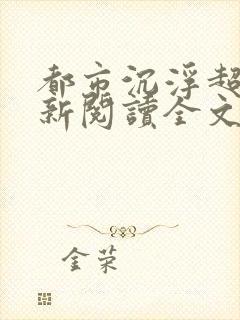 都市沉浮超
新閱讀全文
金荣